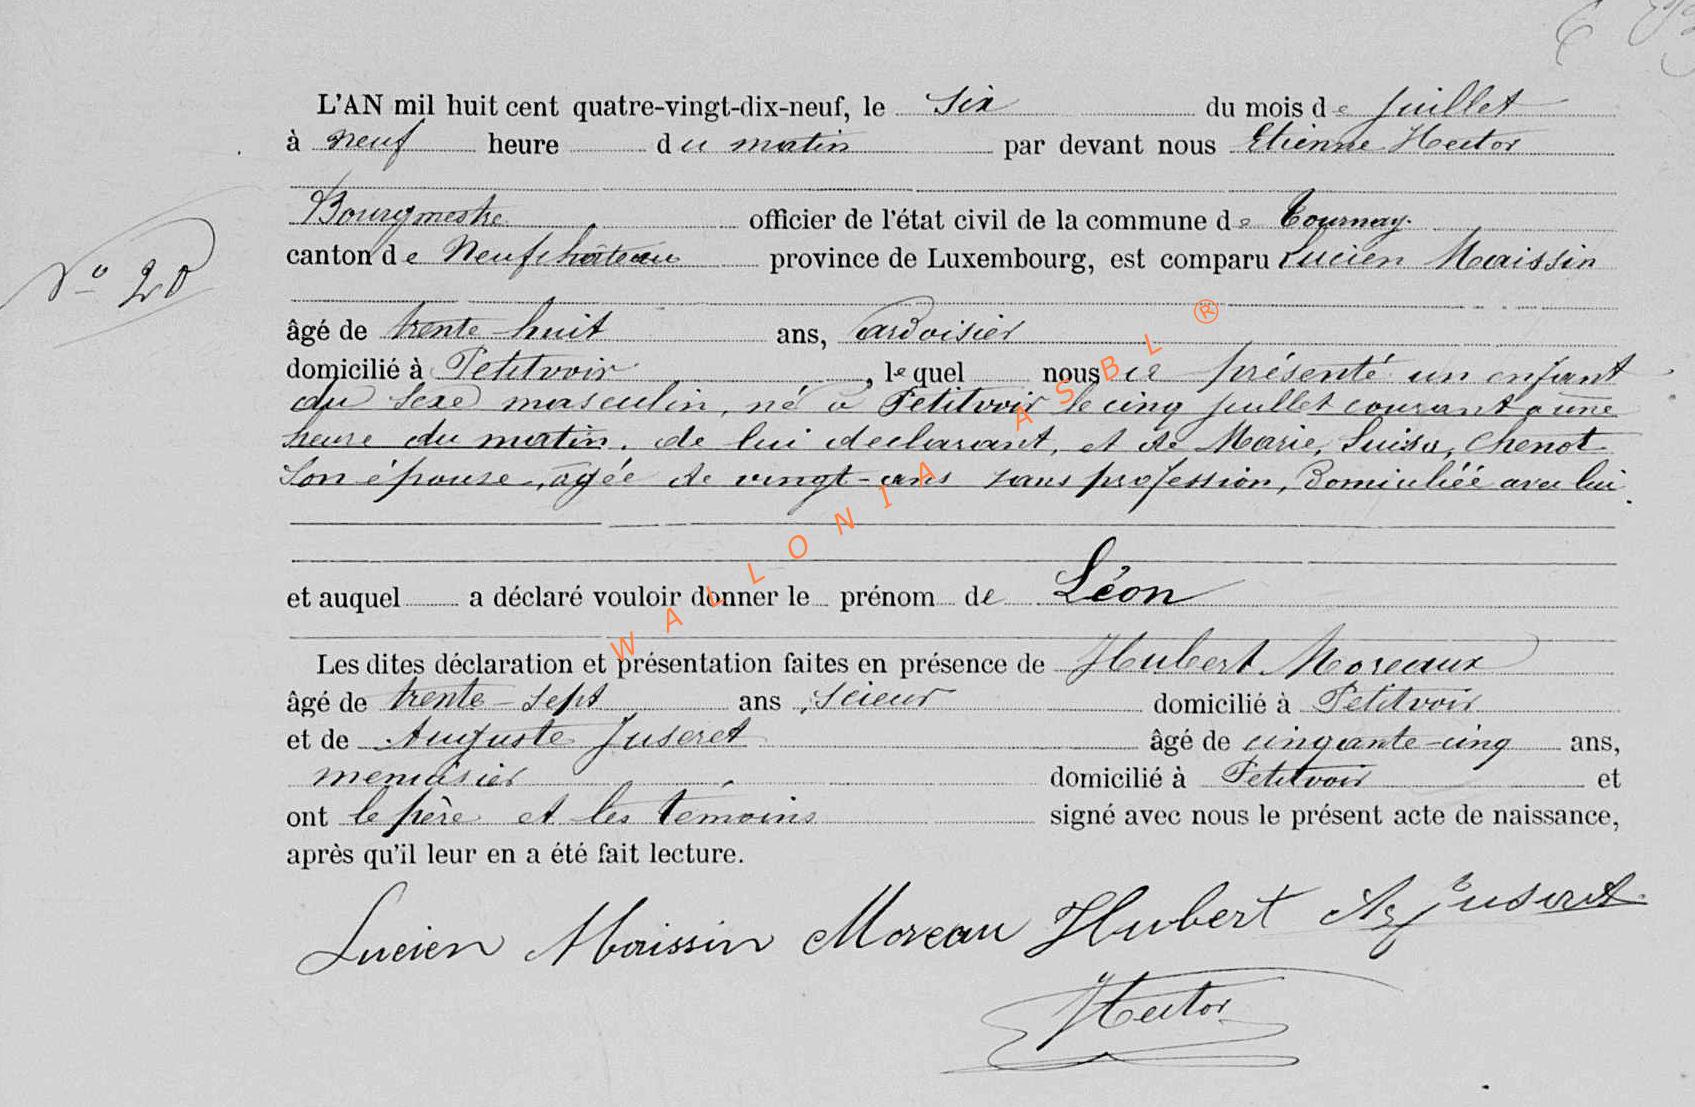 L'AN mil huit cent quatre-vingt-dix-neuf, le six du mois de juillet
à neuf heure du matin par devant nous Etienne Hector
Bourgmestre officier de l'état civil de la commune de Tournay.
N° 20
canton de Neufchâteau province de Luxembourg, est comparu Lucien Maissin
âgé de trente-huit ans, ardoisier
domicilié à Petitvoir, lequel nous a présenté un enfant
du sexe masculin, né à Petitvoir le cinq juillet courant a une
heure du matin, de lui declarant, et de Marie, Luisa, Chenot
son épouse, agée de vingt-ans sans profession, Domiciliéé avec lui.
et auquel a déclaré vouloir donner le prénom de Léon
Les dites déclaration et présentation faites en présence de Hubert Moreaux
âgé de trente-sept ans, scieur domicilié à Petitvoir
et de Auguste Juseret âgé de cinquante-cinq ans,
menuisier domicilié à Petitvoir et
ont le père et les témoins signé avec nous le présent acte de naissance,
après qu'il leur en a été fait lecture.
Lucien Maissin Moreau Hubert Ag Juseret
Hector
WALLONIA ASBL ®